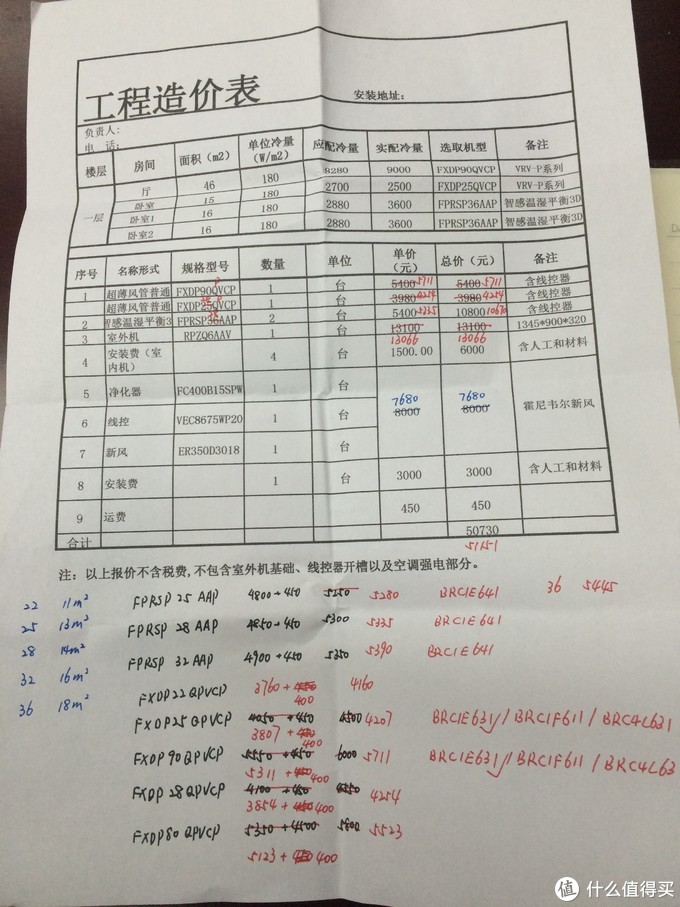 工程造价表
安装地址:
负责人:
电 话:
楼层 房间 面积（m2） 单位冷量（W/m2） 应配冷量 实配冷量 选取机型 备注
一层 厅 46 180 8280 9000 FXDP90QVCP VRV-P系列
卧室 15 180 2700 2500 FXDP25QVCP VRV-P系列
卧室1 16 180 2880 3600 FPRSP36AAP 智感温湿平衡3D
卧室2 16 180 2880 3600 FPRSP36AAP 智感温湿平衡3D
序号 名称形式 规格型号 数量 单位 单价（元） 总价（元） 备注
1 超薄风管普通 FXDP90QVCP P 1 台 5400 5711 5400 5711 含线控器
超薄风管普通 FXDP25QVCP 28 P 1 台 3980 4254 3980 4254 含线控器
2 智感温湿平衡3 FPRSP36AAP 28 2 台 5400 5335 10800 10670 含线控器
3 室外机 RPZQ6AAV 1 台 13100 13066 13100 13066 1345*900*320
4 安装费（室内机） 4 台 1500.00 6000 含人工和材料
5 净化器 FC400B15SPW 1 台
6 线控 VEC8675WP20 1 台 7680 8000 7680 8000 霍尼韦尔新风
7 新风 ER350D3018 1 台
8 安装费 1 台 3000 3000 含人工和材料
9 运费 450 450
合计 50730
51151
注：以上报价不含税费,不包含室外机基础、线控器开槽以及空调强电部分。
22 11m² FPRSP 25 AAP 4800+450 5250 5280 BRC1E641 36 5445
25 13m² FPRSP 28 AAP 4850+450 5300 5335 BRC1E641
28 14m² FPRSP 32 AAP 4900+450 5350 5390 BRC1E641
32 16m² FXDP22QPVCP 3760+450 400 4160
36 18m² FXDP25QPVCP 4050+450 4500 4207 BRC1E631/BRC1F611/BRC4L631
3807+450 400
FXDP90QPVCP 5550+450 6000 5711 BRC1E631/BRC1F611/BRC4L63
5311+450 400
FXDP28QPVCP 4100+450 4550 4254
3854+450 400
FXDP80QPVCP 5350+4500 5800 5523
5123+450 400
值 什么值得买